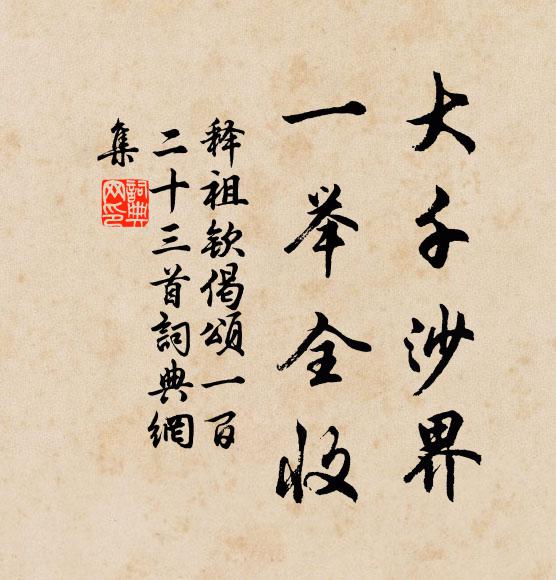 大千沙界
一举全收
释祖钦偈頌一百
二十三首詞典網
集
詞典
网印